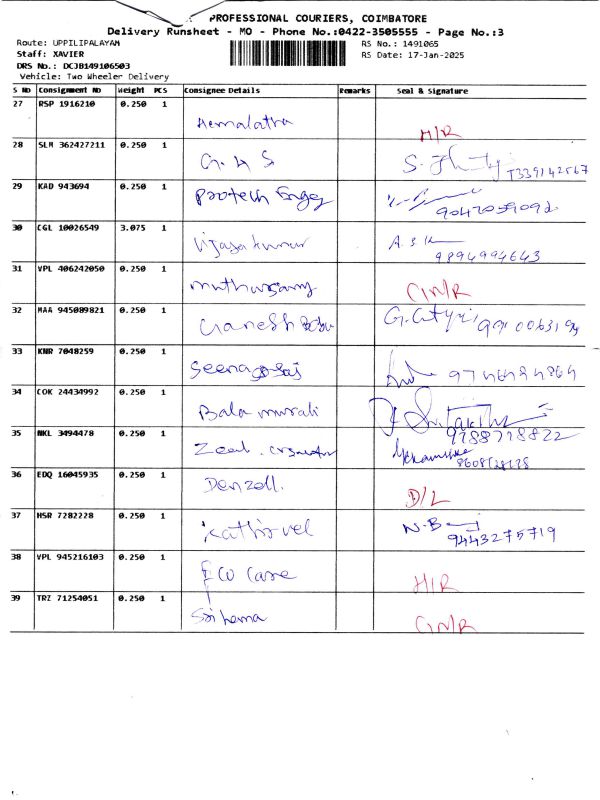 PROFESSIONAL COURIERS, COIMBATORE
Delivery Runsheet - MO - Phone No.:0422-3505555 - Page No.:3
Route: UPPILIPALAYAM
RS No.: 1491065
Staff: XAVIER
RS Date: 17-Jan-2025
DRS No.: DCJB149106503
Vehicle: Two Wheeler Delivery
S No Consignment No Weight PCS Consignee Details Remarks Seal & Signature
27 RSP 1916210 0.250 1 Hemalatha H/R
28 SLM 362427211 0.250 1 G.H S
29 KAD 943694 0.250 1 Protech Engg
30 CGL 10026549 3.075 1 Vijayakumar 9894994643
31 VPL 406242050 0.250 1 muthusamy CN/R
32 MAA 945089821 0.250 1 Ganesh Babu
33 KNR 7048259 0.250 1
34 COK 24434992 0.250 1 Bala murali 9788778822
35 NKL 3494478 0.250 1 Zeal
36 EDQ 16045935 0.250 1 Denzoll. D/L
37 HSR 7282228 0.250 1 Kathirvel N.B 9443275719
38 VPL 945216103 0.250 1 care H/R
39 TRZ 71254051 0.250 1 Sri hema CN/R